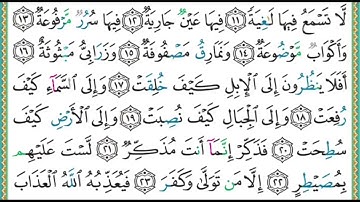 لَّا تَسْمَعُ فِيهَا لَٰغِيَةً ﴿١١﴾ فِيهَا عَيْنٌ جَارِيَةٌ ﴿١٢﴾ فِيهَا سُرُرٌ مَّرْفُوعَةٌ ﴿١٣﴾
وَأَكْوَابٌ مَّوْضُوعَةٌ ﴿١٤﴾ وَنَمَارِقُ مَصْفُوفَةٌ ﴿١٥﴾ وَزَرَابِيُّ مَبْثُوثَةٌ ﴿١٦﴾
أَفَلَا يَنظُرُونَ إِلَى الْإِبِلِ كَيْفَ خُلِقَتْ ﴿١٧﴾ وَإِلَى السَّمَآءِ كَيْفَ
رُفِعَتْ ﴿١٨﴾ وَإِلَى الْجِبَالِ كَيْفَ نُصِبَتْ ﴿١٩﴾ وَإِلَى الْأَرْضِ كَيْفَ
سُطِحَتْ ﴿٢٠﴾ فَذَكِّرْ إِنَّمَآ أَنتَ مُذَكِّرٌ ﴿٢١﴾ لَّسْتَ عَلَيْهِم
بِمُصَيْطِرٍ ﴿٢٢﴾ إِلَّا مَن تَوَلَّىٰ وَكَفَرَ ﴿٢٣﴾ فَيُعَذِّبُهُ اللَّهُ الْعَذَابَ